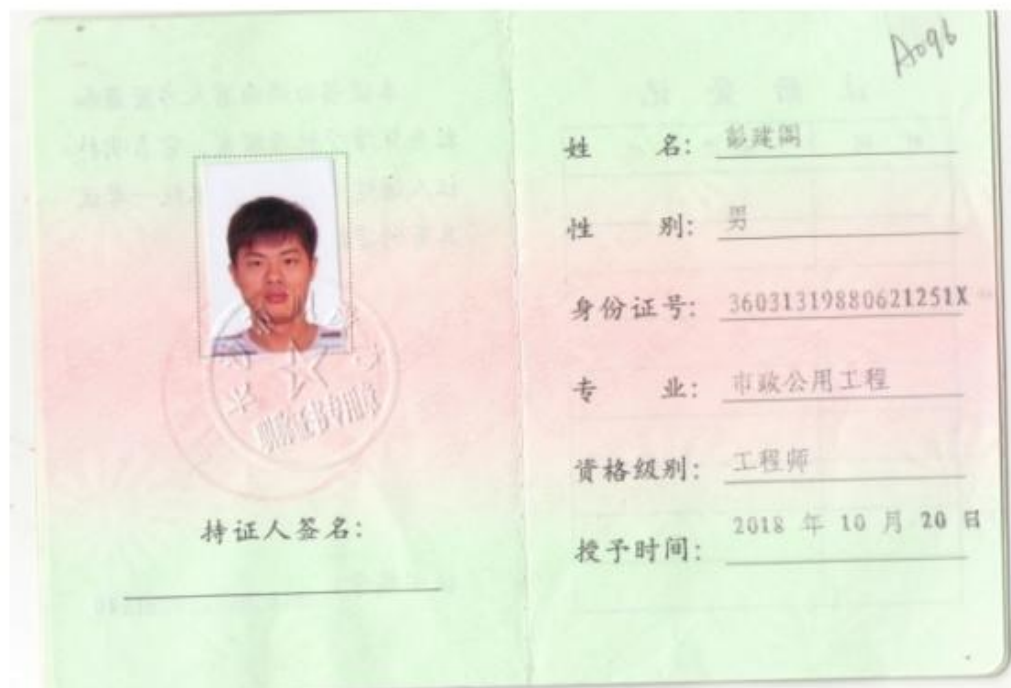 A096
姓 名: 彭建阁
性 别: 男
身份证号: 36031319880621251X
专 业: 市政公用工程
资格级别: 工程师
授予时间: 2018 年 10 月 20 日
持证人签名: